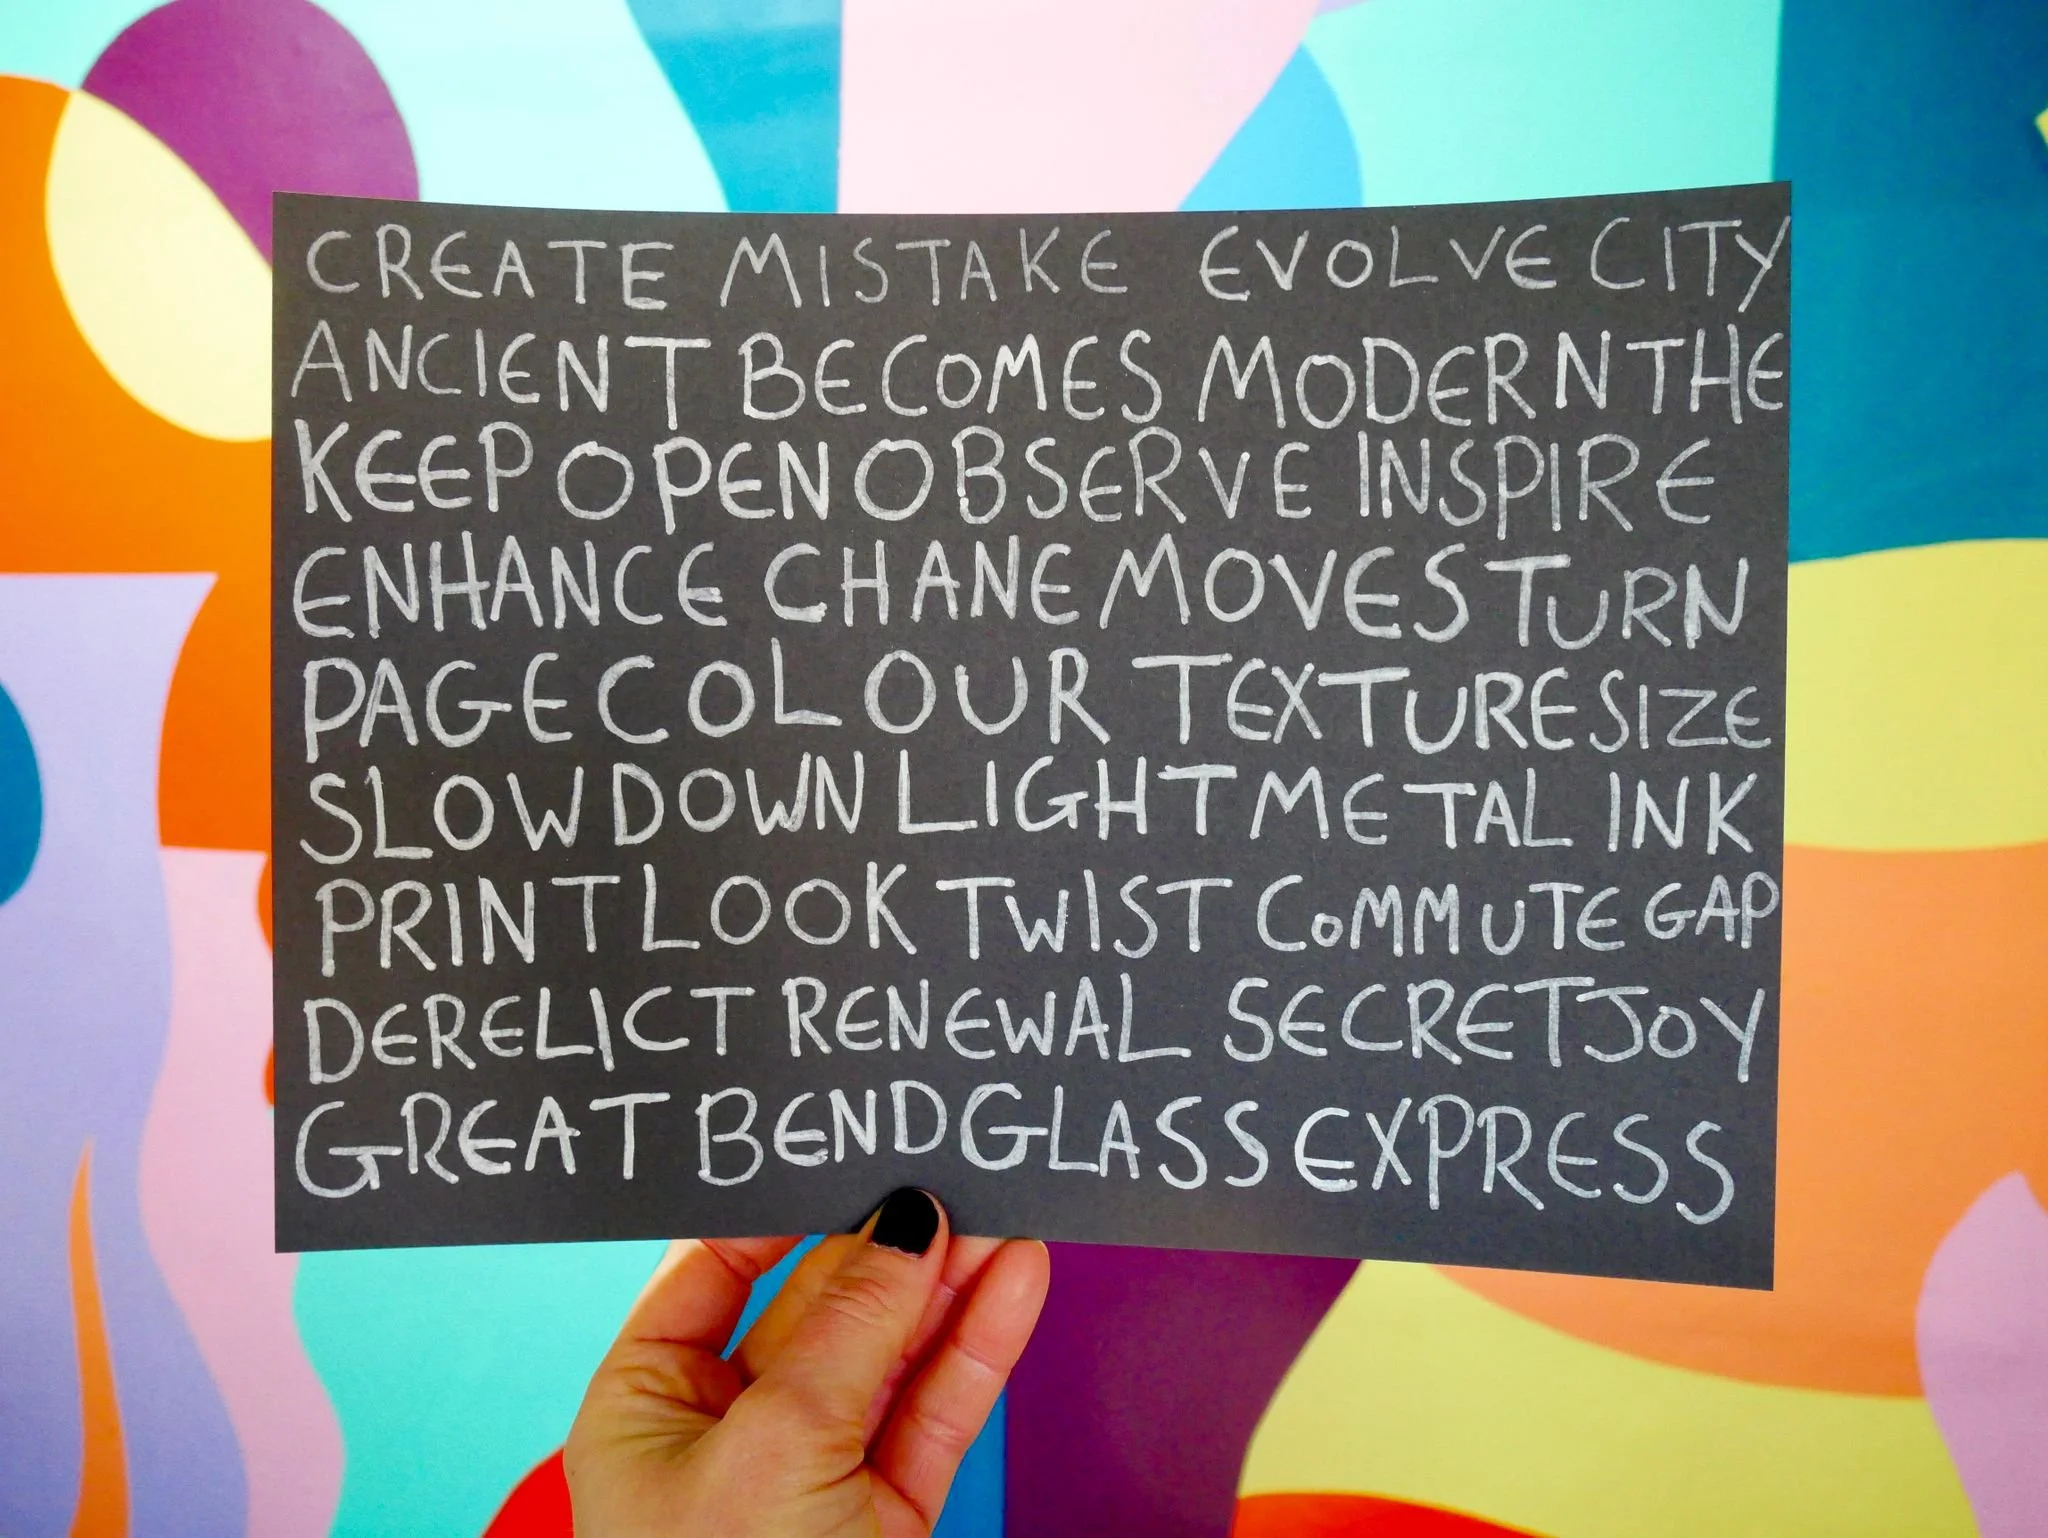 CREATE MISTAKE EVOLVE CITY
ANCIENT BECOMES MODERN THE
KEEP OPEN OBSERVE INSPIRE
ENHANCE CHANE MOVES TURN
PAGE COLOUR TEXTURE SIZE
SLOW DOWN LIGHT METAL INK
PRINT LOOK TWIST COMMUTE GAP
DERELICT RENEWAL SECRET JOY
GREAT BEND GLASS EXPRESS